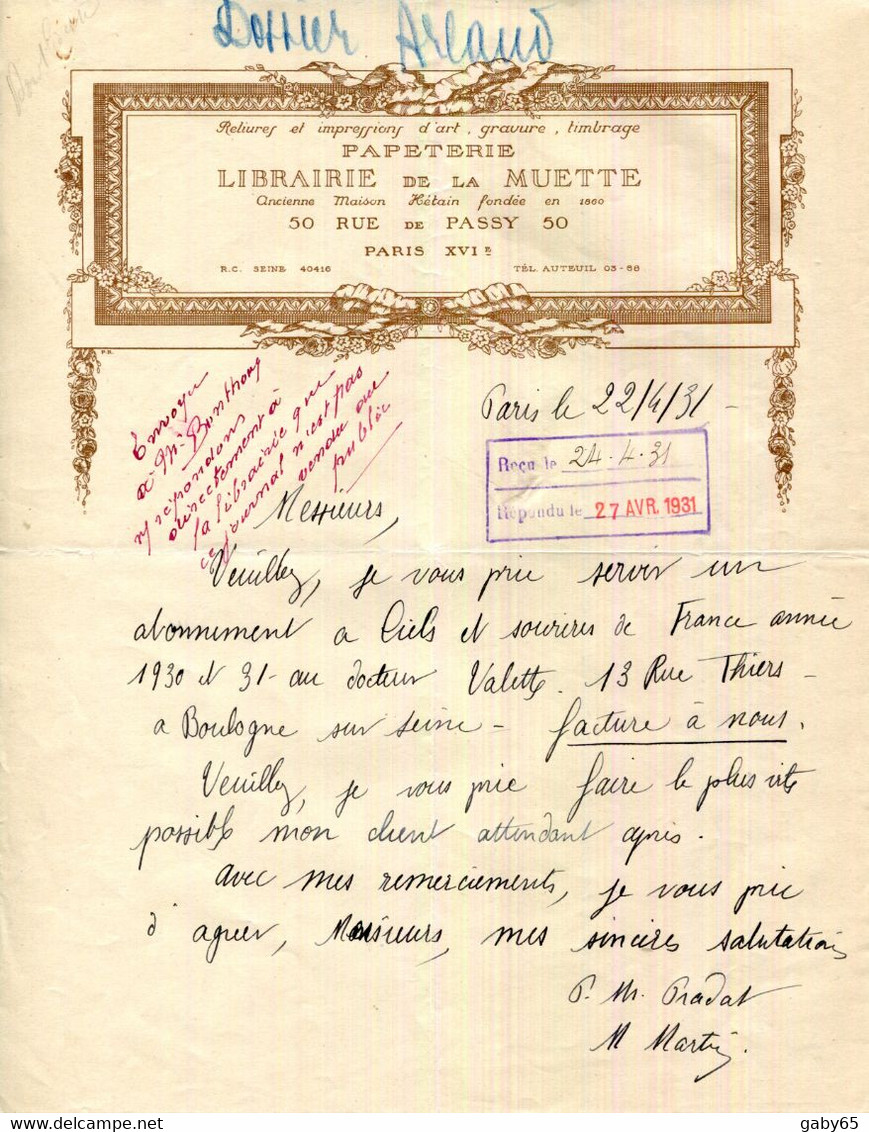 Dossier Arlaud
Reliures et impressions d'art, gravure, timbrage
PAPETERIE
LIBRAIRIE DE LA MUETTE
Ancienne Maison Hétain fondée en 1860
50 RUE DE PASSY 50
PARIS XVIE
R.C. SEINE 40416 TÉL. AUTEUIL 03-68
Envoyer
à Mr Bonthoux
répondons
directement à
la librairie que
ce journal n'est pas
vendu au
public
Paris le 22/4/31 -
Reçu le 24.4.31
Répondu le 27 AVR. 1931
Messieurs,
Veuillez, je vous prie servir un
abonnement a Ciels et sourires de France année
1930 et 31 - au docteur Valette. 13 Rue Thiers -
a Boulogne sur Seine - facture à nous.
Veuillez, je vous prie faire le plus vite
possible mon client attendant après.
avec mes remerciements, je vous prie
d'agréer, Messieurs, mes sincères salutations
P. Mr. Pradat
M Martin.
gaby65